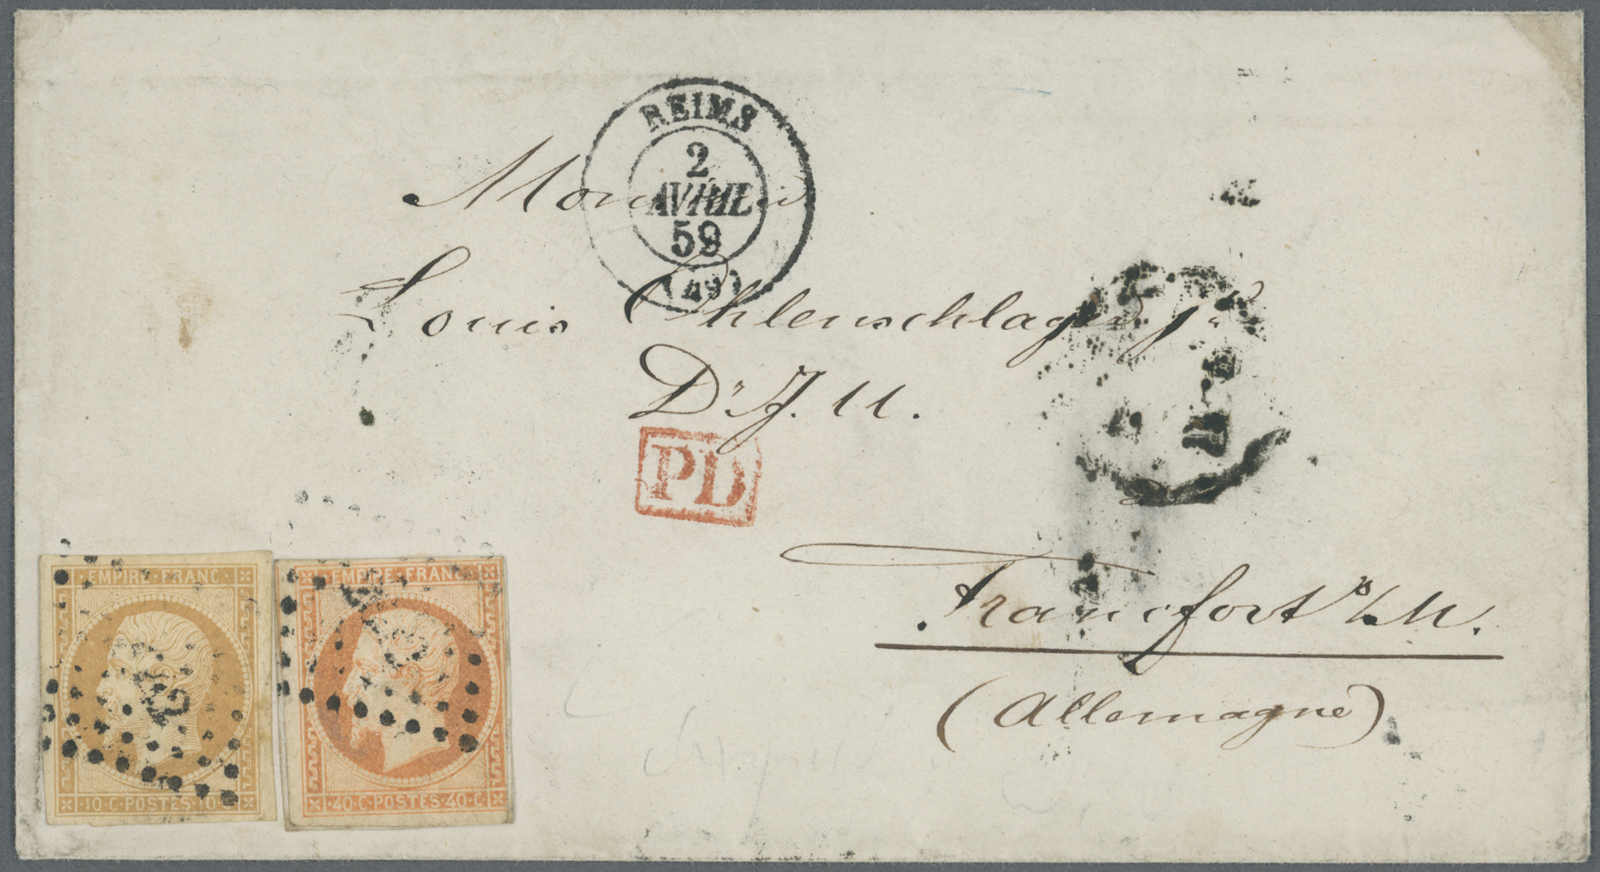 REIMS
2
AVRIL
59
(49)
Monsieur
Louis Ohlenschlager jr
Dr J. U.
PD
Francfort s/M.
(Allemagne)
EMPIRE FRANC
10·C·POSTES·10·C
EMPIRE FRANC
40·C·POSTES·40·C